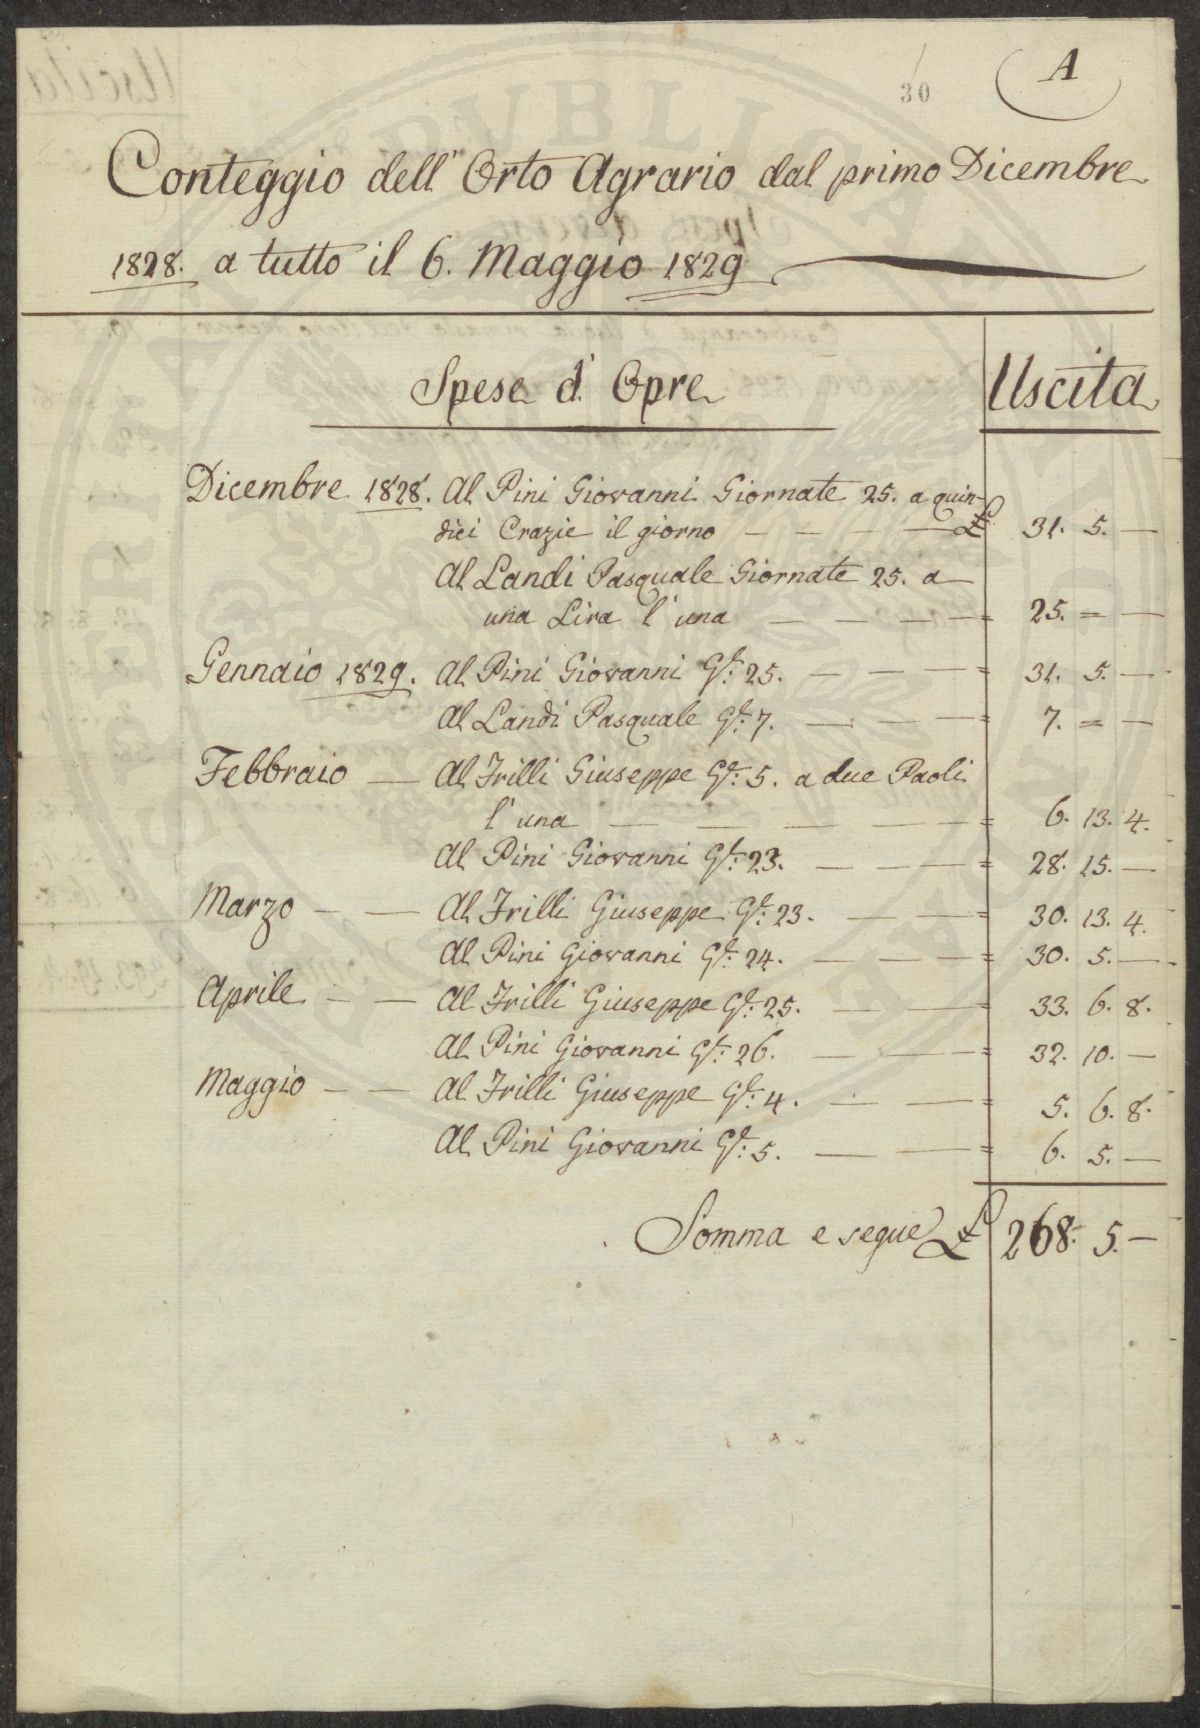 A
30
Conteggio dell' Orto Agrario dal primo Dicembre
1828. a tutto il 6. Maggio 1829
Spese d' Opre
Uscita
Dicembre 1828. Al Pini Giovanni Giornate 25. a quin-
dici Crazie il giorno — — — — £ 31. 5. —
Al Landi Pasquale Giornate 25. a
una Lira l' una — — — — = 25. = —
Gennaio 1829. Al Pini Giovanni G.te 25. — — — = 31. 5. —
Al Landi Pasquale G.te 7. — — — = 7. = —
Febbraio — Al Frilli Giuseppe G.te 5. a due Paoli
l' una — — — — = 6. 13. 4.
Al Pini Giovanni G.te 23. — — — = 28. 15. —
Marzo — — Al Frilli Giuseppe G.te 23. — — = 30. 13. 4.
Al Pini Giovanni G.te 24. — — — = 30. 5. —
Aprile — — Al Frilli Giuseppe G.te 25. — — — 33. 6. 8.
Al Pini Giovanni G.te 26. — — — = 32. 10. —
Maggio — — Al Frilli Giuseppe G.te 4. — — — = 5. 6. 8.
Al Pini Giovanni G.te 5. — — = 6. 5. —
Somma e segue £ 268. 5. —